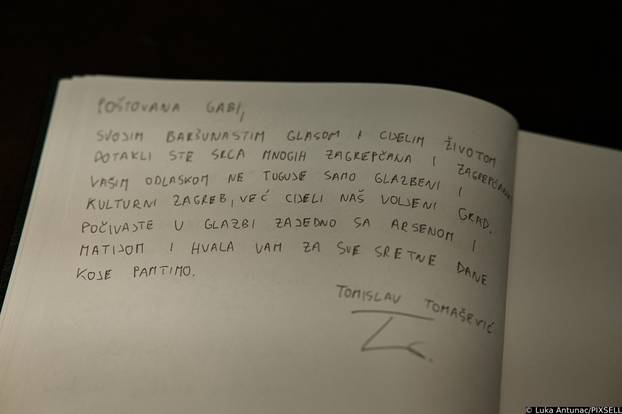 POŠTOVANA GABI,
SVOJIM BARŠUNASTIM GLASOM I CIJELIM ŽIVOTOM
DOTAKLI STE SRCA MNOGIH ZAGREPČANA I ZAGREPČANKI
VAŠIM ODLASKOM NE TUGUJE SAMO GLAZBENI I
KULTURNI ZAGREB, VEĆ CIJELI NAŠ VOLJENI GRAD.
POČIVAJTE U GLAZBI ZAJEDNO SA ARSENOM I
MATIJOM I HVALA VAM ZA SVE SRETNE DANE
KOJE PAMTIMO.
TOMISLAV TOMAŠEVIĆ
© Luka Antunac/PIXSELL